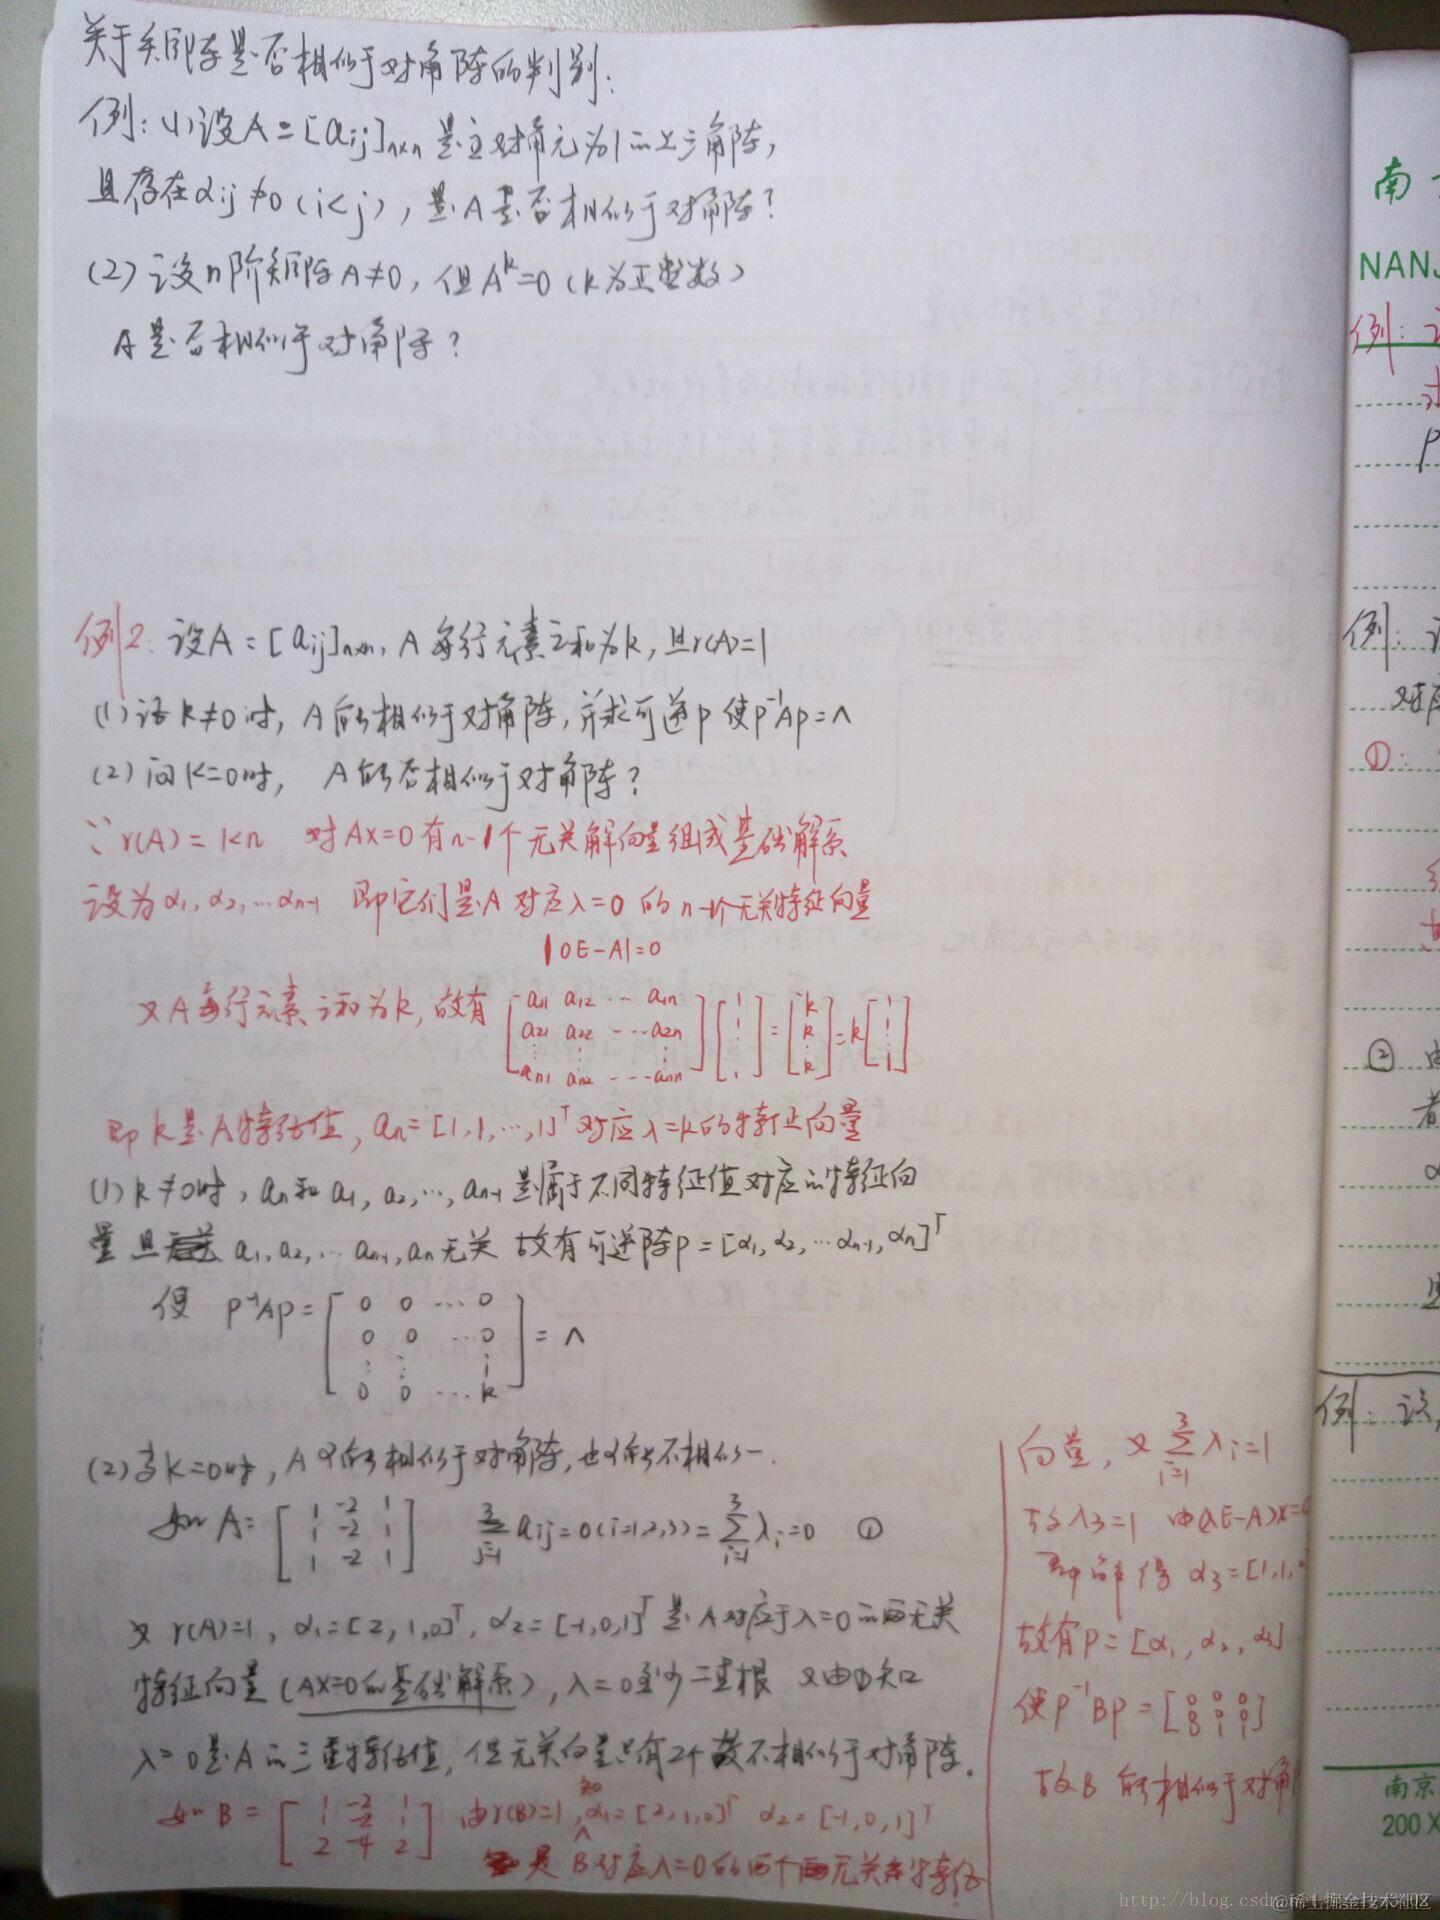 关于矩阵是否相似于对角阵的判别:
例: (1) 设A=[aij]n×n 是主对角元为1的上三角阵,
且存在aij≠0 (i<j), 是A是否相似于对角阵?
(2) 设n阶矩阵A≠0, 但A^k=0 (k为正整数)
A是否相似于对角阵?
例2: 设A=[aij]n×n, A每行元素之和为k, 且r(A)=1
(1) 证k≠0时, A能相似于对角阵, 并求可逆P使P⁻¹AP=Λ
(2) 问k=0时, A能否相似于对角阵?
∵r(A)=1<n 对AX=0有n-1个无关解向量组成基础解系
设为α1, α2, …αn-1 即它们是A对应λ=0的n-1个无关特征向量
|0E-A|=0
又A每行元素之和为k, 故有 [a11 a12 … a1n
a21 a22 … a2n
⋮ ⋮ ⋮
an1 an2 … ann] [1 1 ⋮ 1] = [k k ⋮ k] = k [1 1 ⋮ 1]
即k是A特征值, an=[1,1,…,1]^T对应λ=k的特征向量
(1) k≠0时, an和a1, a2, …, an-1是属于不同特征值对应的特征向
量且 a1, a2, … an-1, an无关 故有可逆阵P=[α1, α2, … αn-1, αn]^T
使 P⁻¹AP= [0 0 … 0
0 0 … 0
⋮ ⋮ ⋮
0 0 … k] = Λ
(2) 当k=0时, A可能相似于对角阵, 也可能不相似.
如A= [1 -2 1
1 -2 1
1 -2 1] Σ(j=1→3) aij=0 (i=1,2,3) = Σ(i=1→3) λi=0 ①
又r(A)=1, α1=[2,1,0]^T, α2=[-1,0,1]^T是A对应于λ=0的两无关
特征向量(AX=0的基础解系), λ=0至少二重根 又由①知
λ=0是A的三重特征值, 但无关向量只有2个故不相似于对角阵.
如B= [1 -2 1
1 -2 1
2 -4 2] 由r(B)=1, 知α1=[2,1,0]^T α2=[-1,0,1]^T
是B对应λ=0的两个无关特征
向量, 又Σ(i=1→3) λi=1
故λ3=1 由(λE-A)X=0
即解得 α3=[1,1,
故有P=[α1, α2, α3]
使P⁻¹BP= [0 0 0
0 0 1]
故B能相似于对角
南
NANJ
例:
P
例:
对应
①:
②
者
α
例: 设
南京
200 X
http://blog.csdn.n
@稀土掘金技术社区